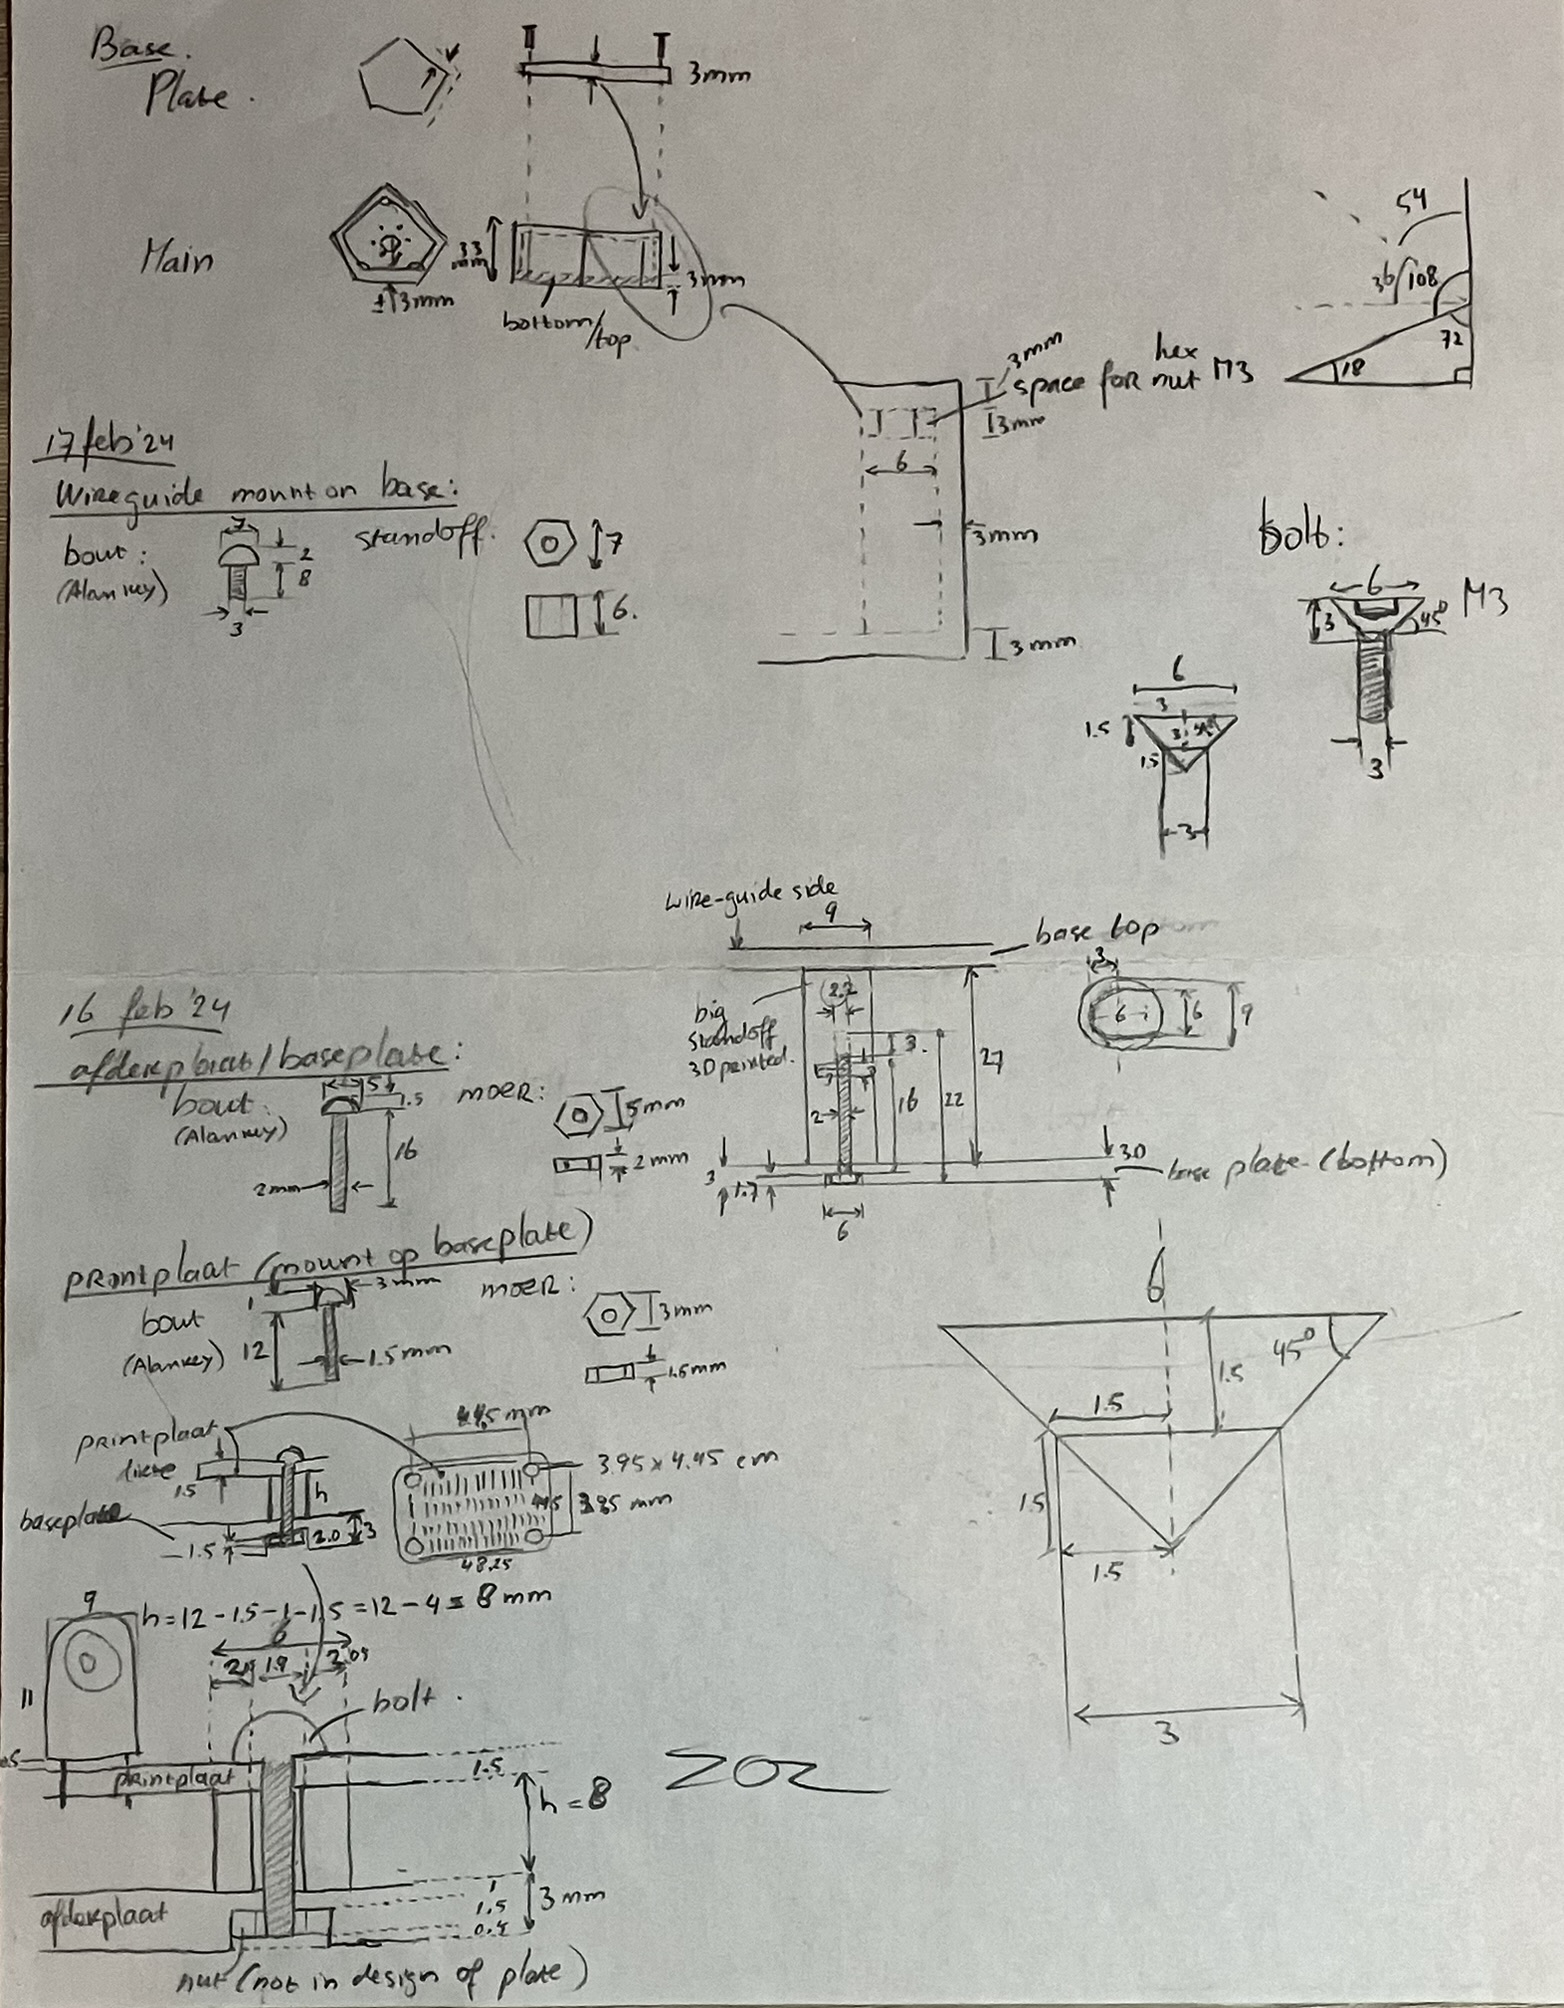 Base.
Plate.
3mm
Main
33
mm
3mm
±3mm
bottom/top
54
36
108
72
18
3mm
space for hex nut M3
3mm
6
3mm
3mm
17 feb '24
Wireguide mount on base:
bout:
(Alankey)
7
2
8
3
standoff.
7
6.
bolt:
6
M3
3
45°
3
6
3
1.5
3
1.5
3
wire-guide side
9
base top
big
standoff
3D printed.
2.2
3.
27
2
16
22
3
1.7
6
3.0
base plate (bottom)
3
6
6
9
16 feb '24
afdekplaat/baseplate:
bout:
(Alankey)
5
1.5
16
2mm
MOER:
5mm
2mm
printplaat (mount op baseplate)
bout
(Alankey)
1
3mm
12
1.5mm
MOER:
3mm
1.5mm
6
45°
1.5
1.5
1.5
1.5
3
printplaat
dikte
1.5
h
baseplate
1.5
2.0
3
44.5 mm
3.95 x 4.45 cm
mm
48.25
h = 12 - 1.5 - 1 - 1.5 = 12 - 4 = 8 mm
9
11
6
1.9
bolt.
printplaat
1.5
h = 8
ZOZ
afdekplaat
1
1.5
0.5
3 mm
nut (not in design of plate)